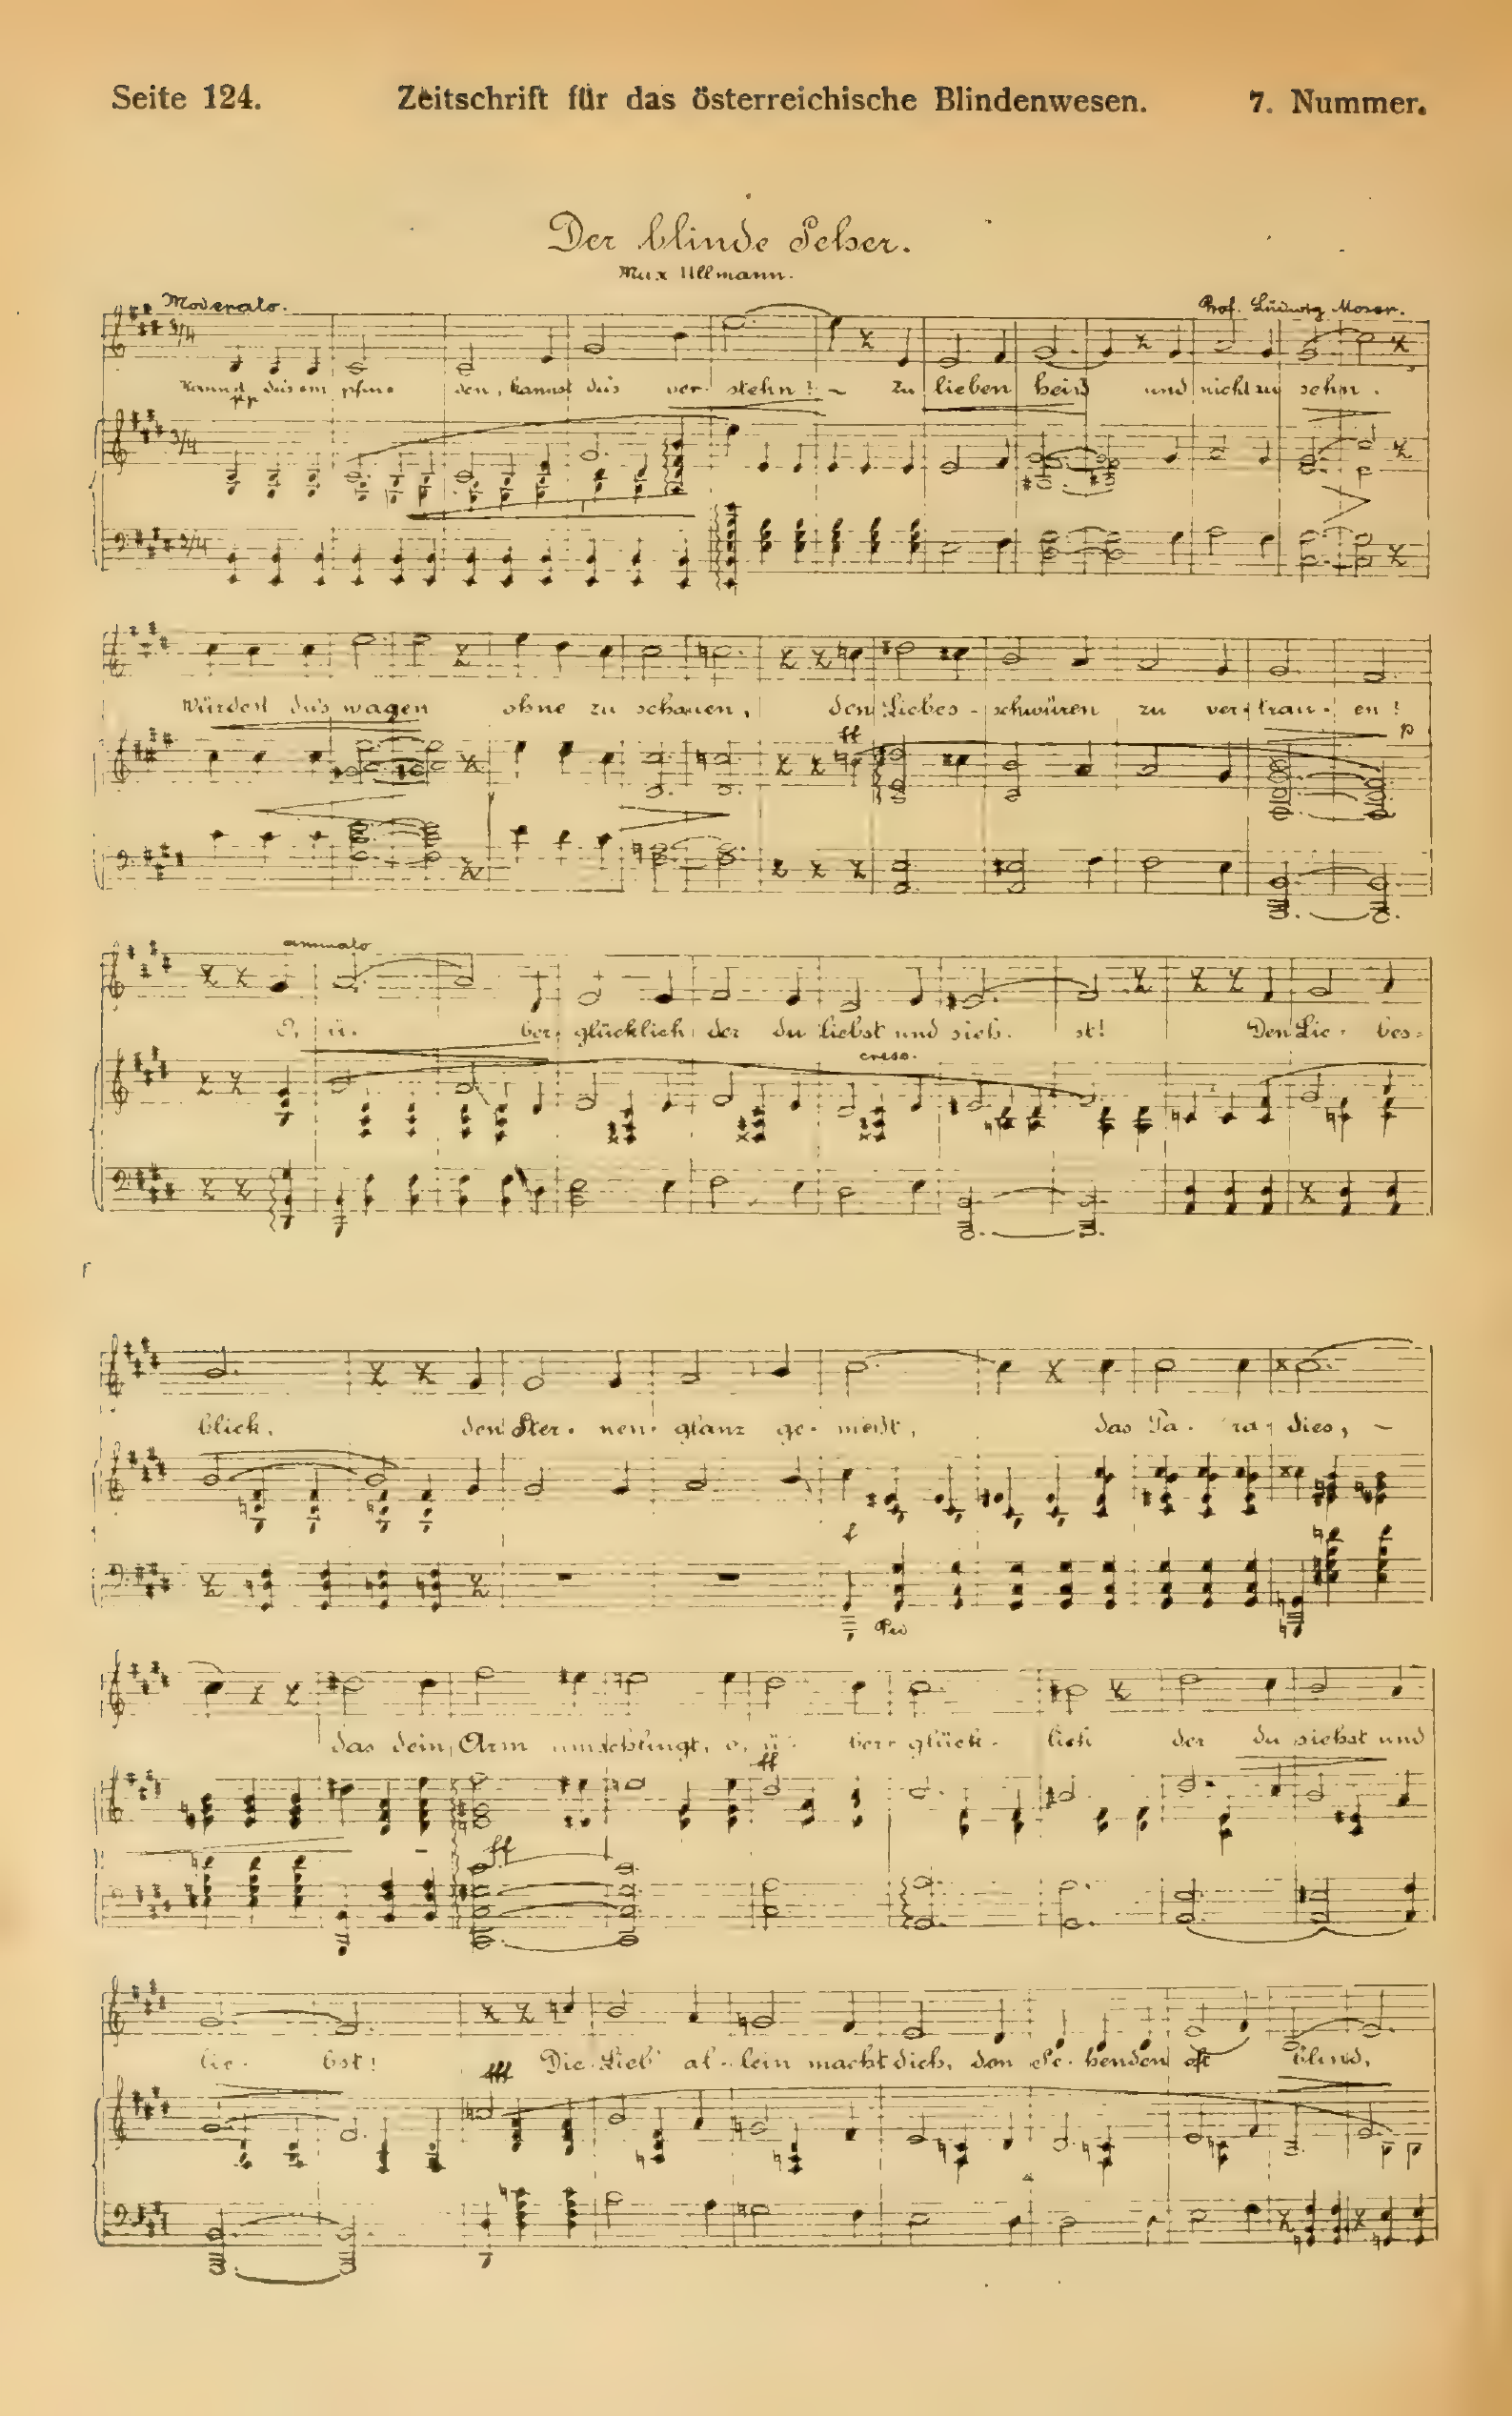 Seite 124. Zeitschrift für das österreichische Blindenwesen. 7. Nummer.
Der blinde Seher.
Max Ullmann.
Moderato. Prof. Ludwig Moser.
3/4
Kannst du's em pfin- den, kannst du's ver- stehn? - zu lieben heiß und nicht zu sehn.
pp
3/4
3/4
Würdest du's wagen ohne zu schauen, den Liebes - schwüren zu ver- trau- en?
ff p
animato
O, ü- ber- glücklich der du liebst und sieh- st! Den Lie- bes-
cresc.
blick, den Ster- nen- glanz ge- nießt, das Pa- ra- dies, -
f
Ped
das dein Arm umschlingt, o, ü- ber- glück- lich der du siehst und
ff
ff
lie- bst! Die Lieb' al- lein macht dich, den Se- henden oft blind,
fff